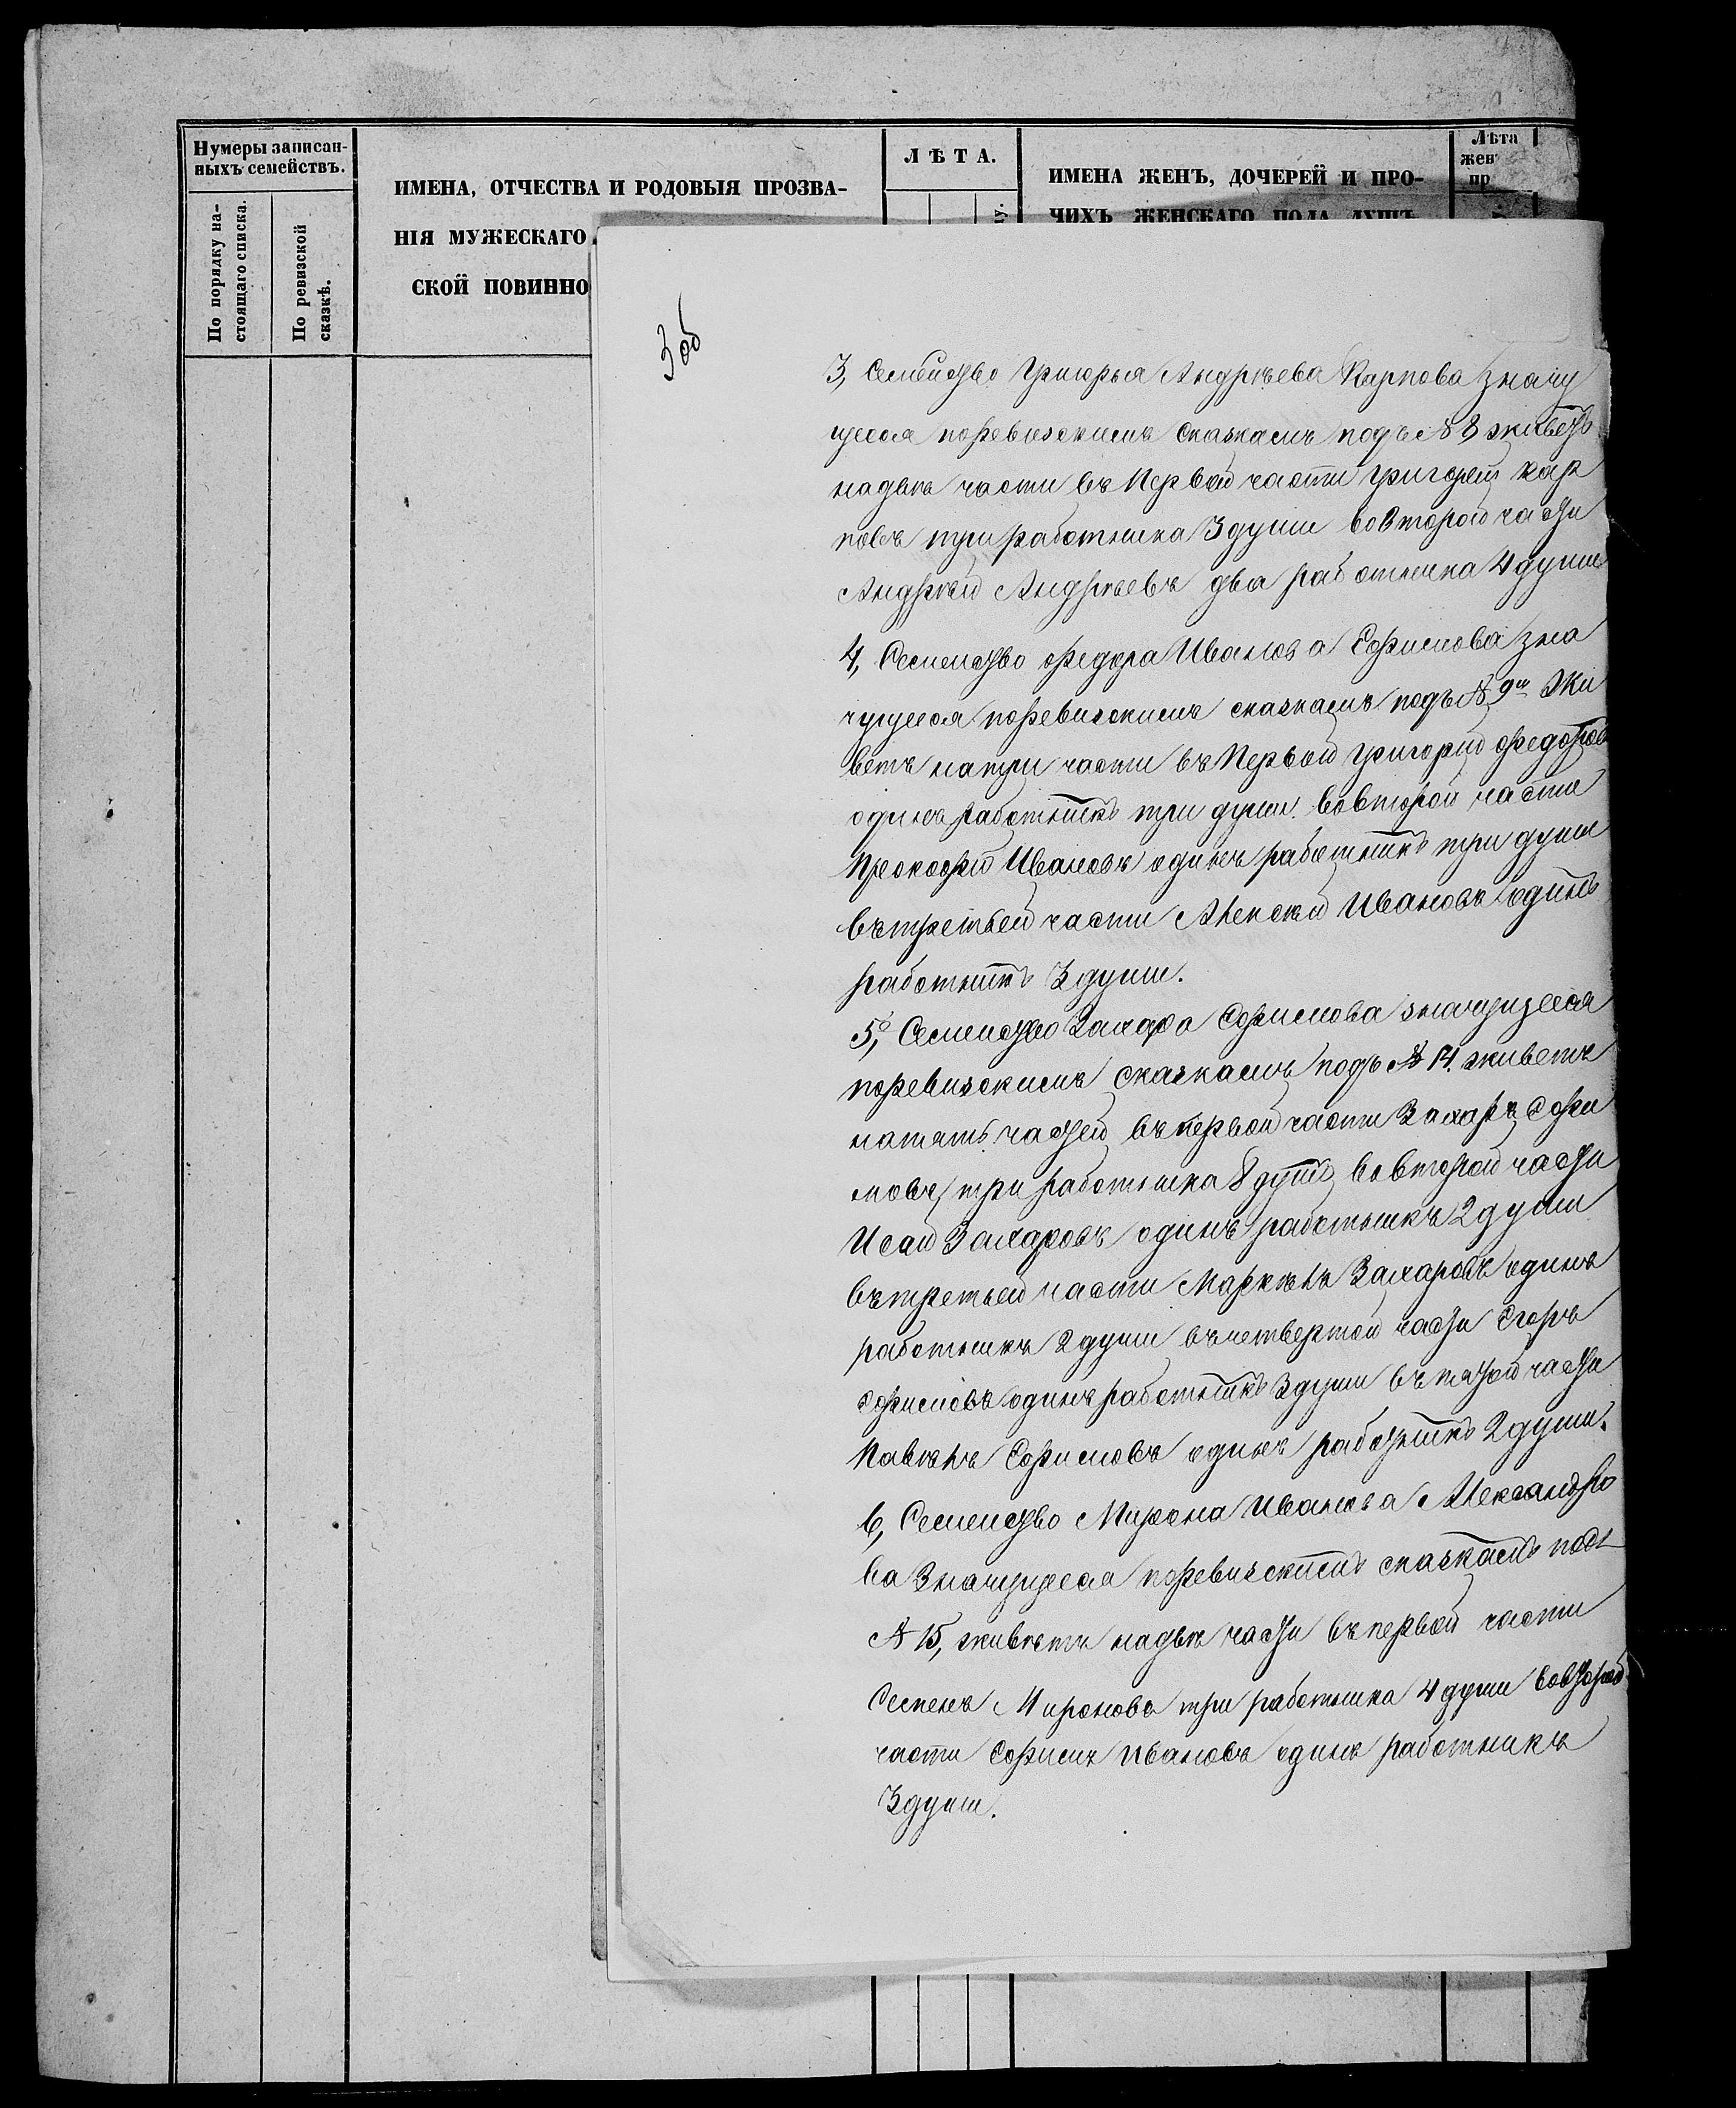 Нумеры записан-
ныхъ семействъ.
По порядку на-
стоящаго списка.
По ревизской
сказкѣ.
ИМЕНА, ОТЧЕСТВА И РОДОВЫЯ ПРОЗВА-
НІЯ МУЖЕСКАГО
СКОЙ ПОВИННО
ЛѢТА.
ИМЕНА ЖЕНЪ, ДОЧЕРЕЙ И ПРО-
ЧИХЪ ЖЕНСКАГО ПОЛА ДУШЪ
Лѣта
жен
пр
3 об
3, Семейство Григорья Андрѣева Карпова значу
щееся поревизскимъ сказкамъ подъ № 8 живетъ
надвѣ части въ Первой части Григорей Кар
повъ три работника 3 души вовторой части
Андрѣй Андрѣевъ два работника 4 души
4, Семейство Федора Иванова Ефимова зна
чущееся поревизскимъ сказкамъ подъ № 9м жи
ветъ натри части въ Первой Григорий Федоровъ
одинъ работникъ три души. вовторой части
Прокофій Ивановъ одинъ работникъ три души
вътретьей части Алексѣй Ивановъ одинъ
работникъ 3 души.
5, Семейство Захара Ефимова значущееся
поревизскимъ сказкамъ подъ № 14. живетъ
напять частей въ первой части Захаръ Ефи
мовъ три работника 8 душъ вовторой части
Исай Захаровъ одинъ работникъ 2 души
вътретьей части Маркелъ Захаровъ одинъ
работникъ 2 души въчетвертой части Егоръ
Ефимовъ одинъ работникъ 3 души въ пятой части
Павелъ Ефимовъ одинъ работникъ 2 души.
6, Семейство Мирона Иванова Александро
ва Значущееся поревизскимъ сказкамъ подъ
№ 15, живетъ надвѣ части въ первой части
Семенъ Мироновъ три работника 4 души вовторой
части Ефимъ Ивановъ одинъ работникъ
3 души.